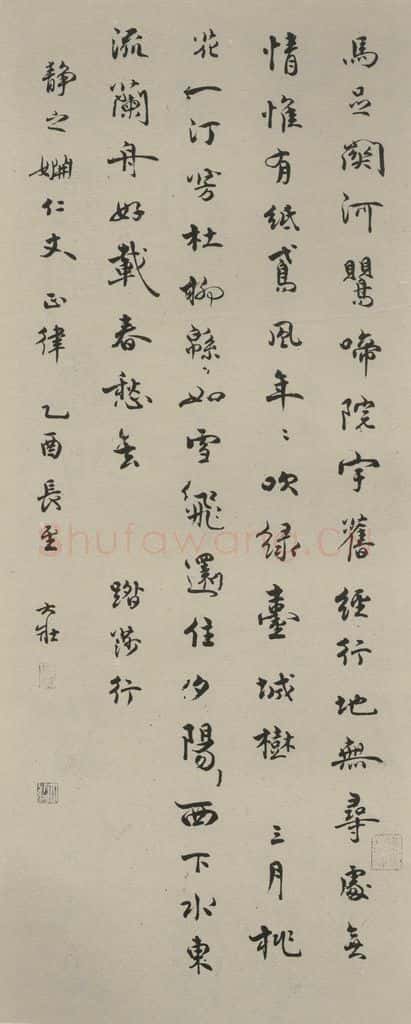 馬足關河鸎啼院宇舊經行地無尋處无
情惟有紙鳶風年々吹綠臺城樹 三月桃
花一汀芳杜柳緜如雪飛還住夕陽西下水東
流蘭舟好載春愁去 踏莎行
静之姻仁丈正律 乙酉長至 大壯
Shufawang.cn